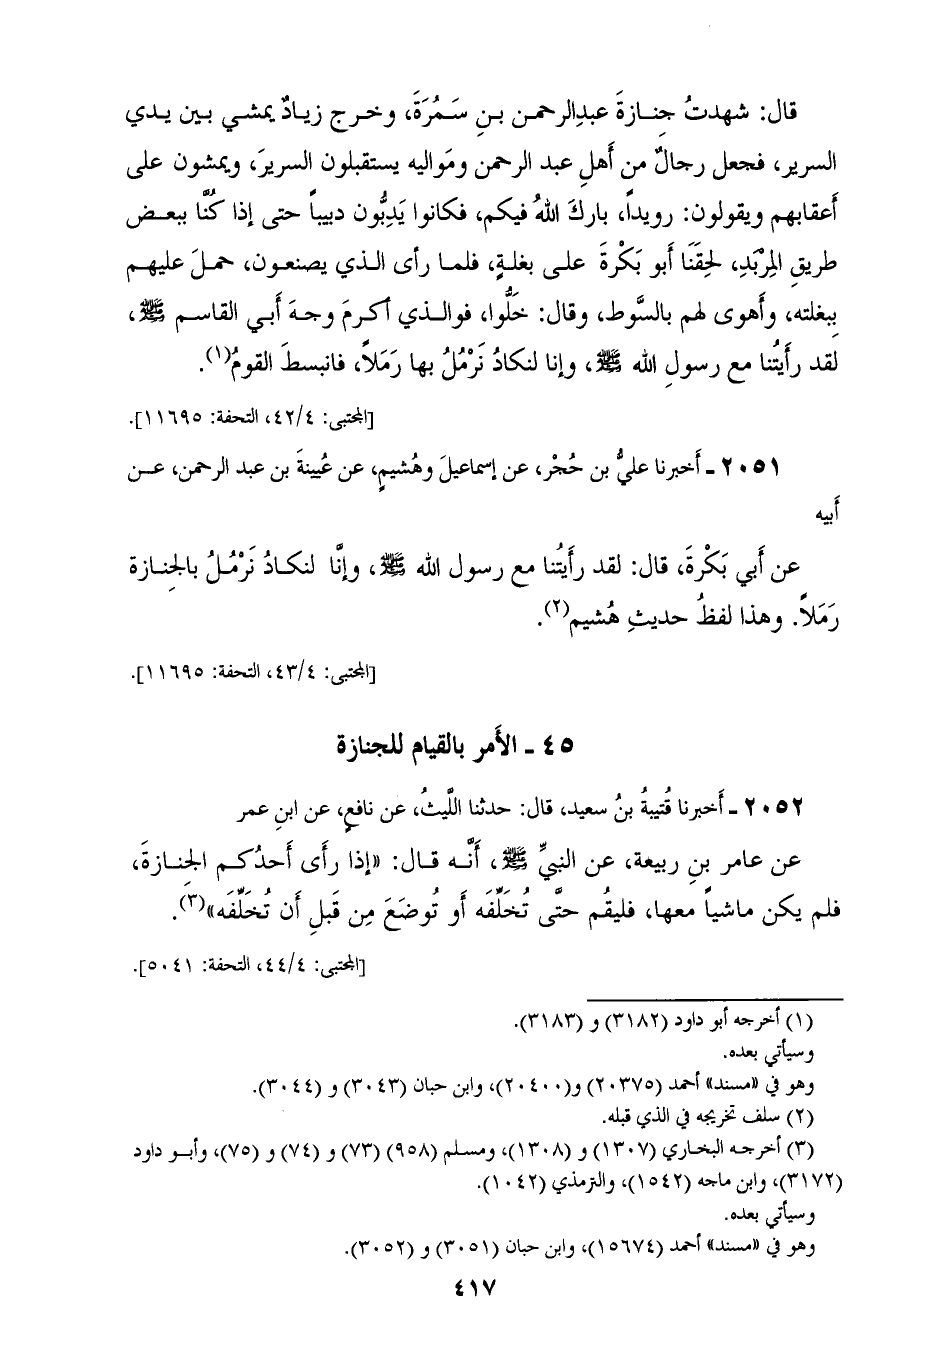 قال: شهدتُ جِنازةَ عبدِالرحمن بنِ سَمُرَةَ، وخرج زيادٌ يمشي بين يدي
السرير، فجعل رجالٌ من أَهلِ عبد الرحمن ومَواليه يستقبلون السريرَ، ويمشون على
أَعقابهم ويقولون: رويداً، باركَ اللهُ فيكم، فكانوا يَدِبُّون دبيباً حتى إذا كُنَّا ببعض
طريقِ المِرْبَدِ، لحِقَنَا أَبو بَكْرةَ على بغلةٍ، فلما رأى الذي يصنعون، حملَ عليهم
ببغلته، وأَهوى لهم بالسَّوط، وقال: خَلُّوا، فوالذي أَكرمَ وجهَ أَبي القاسم ﷺ،
لقد رأَيتُنا مع رسولِ الله ﷺ، وإنا لنكادُ نَرْمُلُ بها رَمَلاً، فانبسطَ القومُ(١).
[المجتبى: ٤/٤٢، التحفة: ١١٦٩٥].
٢٠٥١ ـ أَخبرنا عليُّ بن حُجْر، عن إسماعيلَ وهُشيمٍ، عن عُيينةَ بن عبد الرحمن، عن
أَبيه
عن أَبي بَكْرةَ، قال: لقد رأَيتُنا مع رسول الله ﷺ، وإنَّا لنكادُ نَرْمُلُ بالجِنازة
رَمَلاً. وهذا لفظُ حديثِ هُشيم(٢).
[المجتبى: ٤/٤٣، التحفة: ١١٦٩٥].
٤٥ ـ الأَمر بالقيام للجنازة
٢٠٥٢ ـ أَخبرنا قُتيبةُ بنُ سعيد، قال: حدثنا اللَّيثُ، عن نافعٍ، عن ابنِ عمر
عن عامر بنِ ربيعة، عن النبيِّ ﷺ، أَنَّه قال: «إذا رأى أَحدُكم الجِنازةَ،
فلم يكن ماشياً معها، فليقُم حتَّى تُخَلِّفَه أو تُوضَعَ مِن قَبلِ أَن تُخَلِّفَه»(٣).
[المجتبى: ٤/٤٤، التحفة: ٥٠٤١].
(١) أخرجه أبو داود (٣١٨٢) و (٣١٨٣).
وسيأتي بعده.
وهو في «مسند» أحمد (٢٠٣٧٥) و(٢٠٤٠٠)، وابن حبان (٣٠٤٣) و (٣٠٤٤).
(٢) سلف تخريجه في الذي قبله.
(٣) أخرجه البخاري (١٣٠٧) و (١٣٠٨)، ومسلم (٩٥٨) (٧٣) و (٧٤) و (٧٥)، وأبو داود
(٣١٧٢)، وابن ماجه (١٥٤٢)، والترمذي (١٠٤٢).
وسيأتي بعده.
وهو في «مسند» أحمد (١٥٦٧٤)، وابن حبان (٣٠٥١) و (٣٠٥٢).
٤١٧